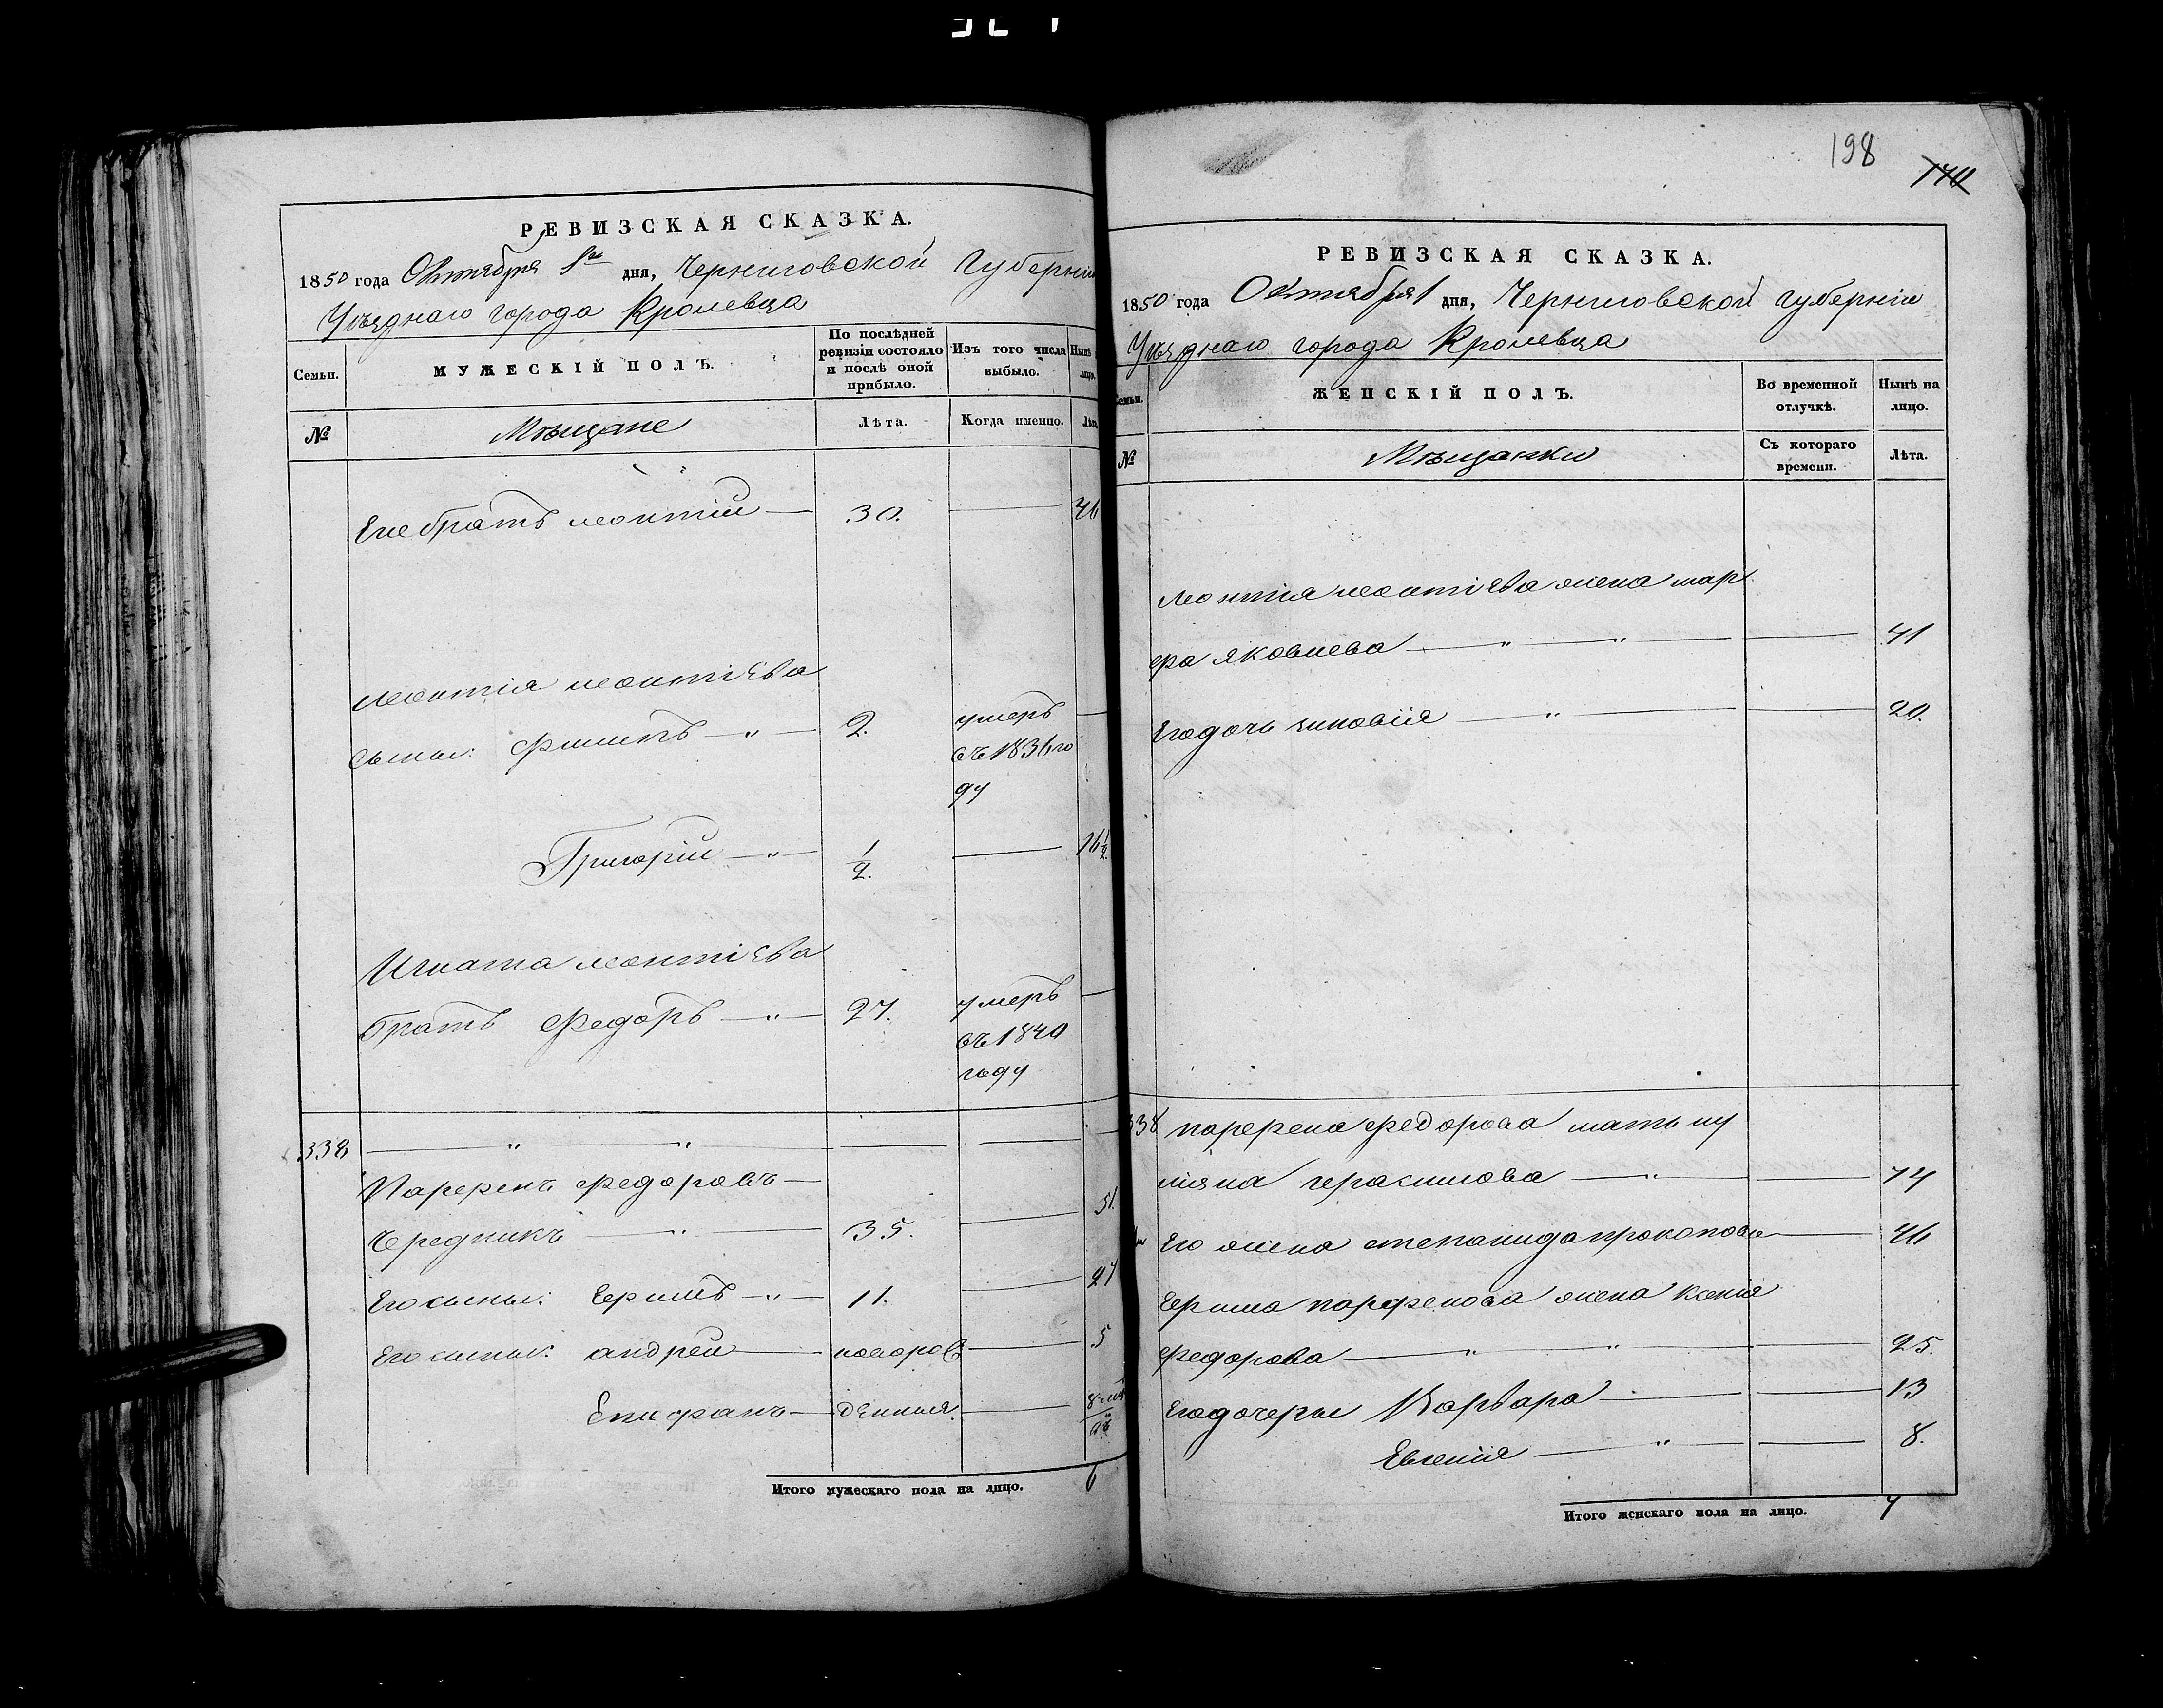 РЕВИЗСКАЯ СКАЗКА.
1850 года Октября 1го дня, Черниговской Губерніи
Уѣзднаго города Кролевца
Семьи. МУЖЕСКІЙ ПОЛЪ. По послѣдней ревизіи состояло и послѣ оной прибыло. Изъ того числа выбыло. Нынѣ лицо.
№ Мѣщане Лѣта. Когда именно. Лѣта
Его братъ леонтій — 30. — 46
Леонтія леонтіева
сыны: Филипъ — 2. умеръ
въ 1836 го
ду
Григорій — 1/2. — 16 1/2.
Игната леонтіева
братъ Федоръ — 27. умеръ
въ 1840
году
338
Парфенъ федоровъ —
Чередникъ — 35. — 51.
Его сыны: — 11. — 27
Его сыны: андрей — новорож — 5
Епифанъ — денныя —
Итого мужескаго пола на лицо. 6
198
140
РЕВИЗСКАЯ СКАЗКА.
1850 года Октября 1 дня, Черниговской губерніи
Уѣзднаго города Кролевца
Семьи. ЖЕНСКІЙ ПОЛЪ. Во временной отлучкѣ. Нынѣ на лицо.
№ Мѣщанки Съ котораго времени. Лѣта.
Леонтія леонтіева жена мар
фа яковлева — 41
Его дочь зиновіія — 20.
338 парфена федорова мать
герасимова — 74
Его жена степанида прокопова — 46
парфенова жена ксенія
федорова — 25.
Его дочеры Варвара — 13
Евгенія — 8.
Итого женскаго пола на лицо. 7